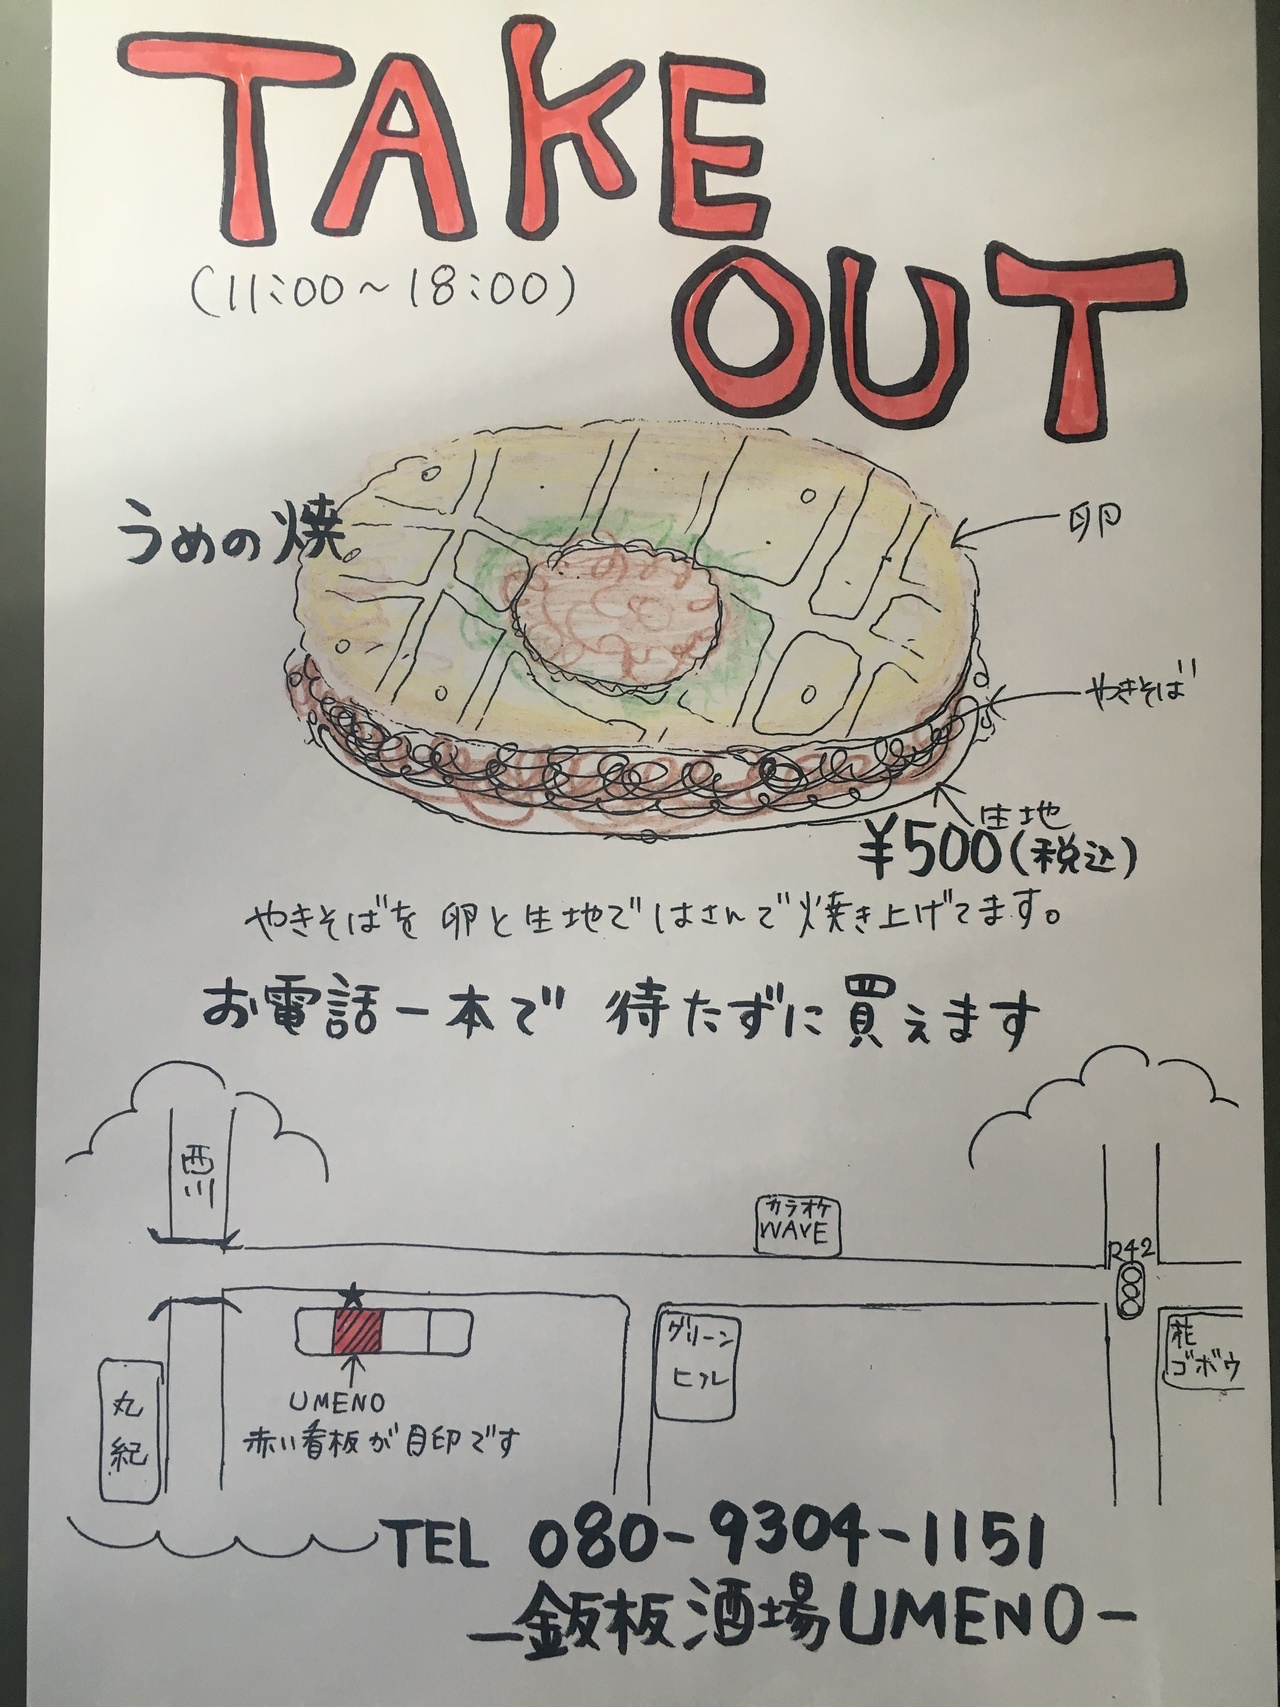 TAKE
OUT
(11:00～18:00)
うめの焼
卵
やきそば
生地
¥500(税込)
やきそばを 卵と生地ではさんで焼き上げてます。
お電話一本で 待たずに買えます
西川
カラオケ
WAVE
R42
グリーン
ヒル
花
ゴボウ
UMENO
赤い看板が目印です
丸紀
TEL 080-9304-1151
酒場UMENO-